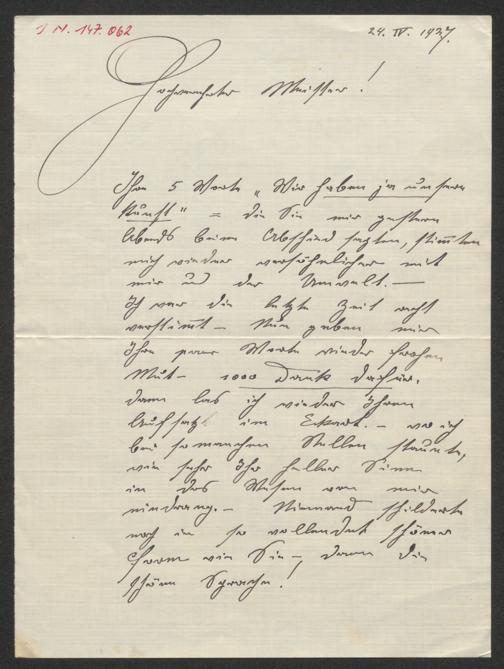 I N. 147.062
24. IV. 1927.
Hochverehrter Meister!
Ihre 5 Worte „Wir haben ja unsere
Kunst" = die Sie mir gestern
Abends beim Abschied sagten, stim̅ten
mich wieder versöhnlicher mit
mir u der Umwelt. —
Ich war die letzte Zeit recht
verstim̅t — Nun gaben mir
Ihre paar Worte wieder frohen
Mut — 1000 Dank dafür.
Dann las ich wieder Ihren
Aufsatz im Eckart. — wo ich
bei so manchen Stellen staunte,
wie sehr Ihr heller Sinn
in das Wesen von mir
eindrang. — Niemand schilderte
noch in so vollendet schöner
Form wie Sie —, dann die
schöne Sprache!